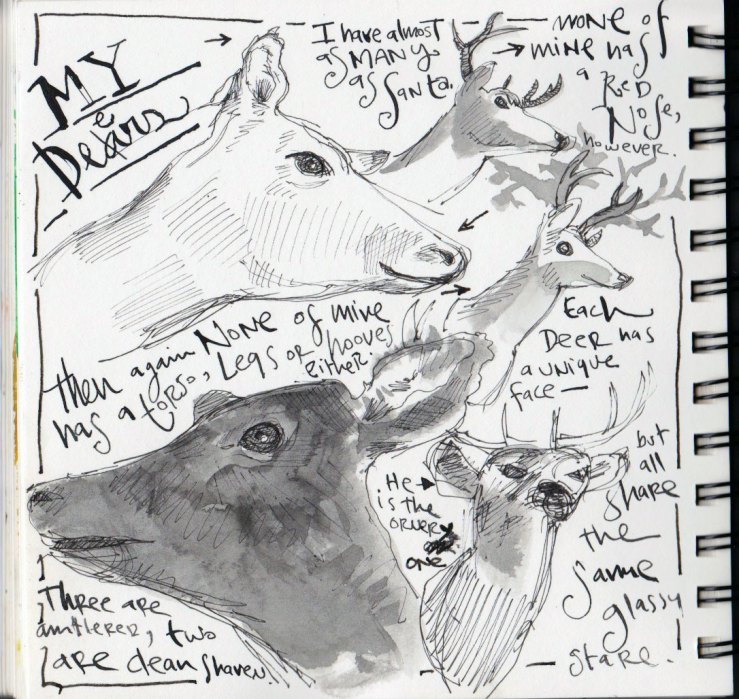 MY
e
Dears
I have almost
as MANY
as Santa.
NONE of
mine has
a RED
Nose,
however.
then again NONE of mine
has a torso, Legs or hooves
either.
Each
DEER has
a unique
face —
but
all
share
the
same
glassy
stare.
He
is the
ornery
one
Three are
antlerer, two
are clean shaven.